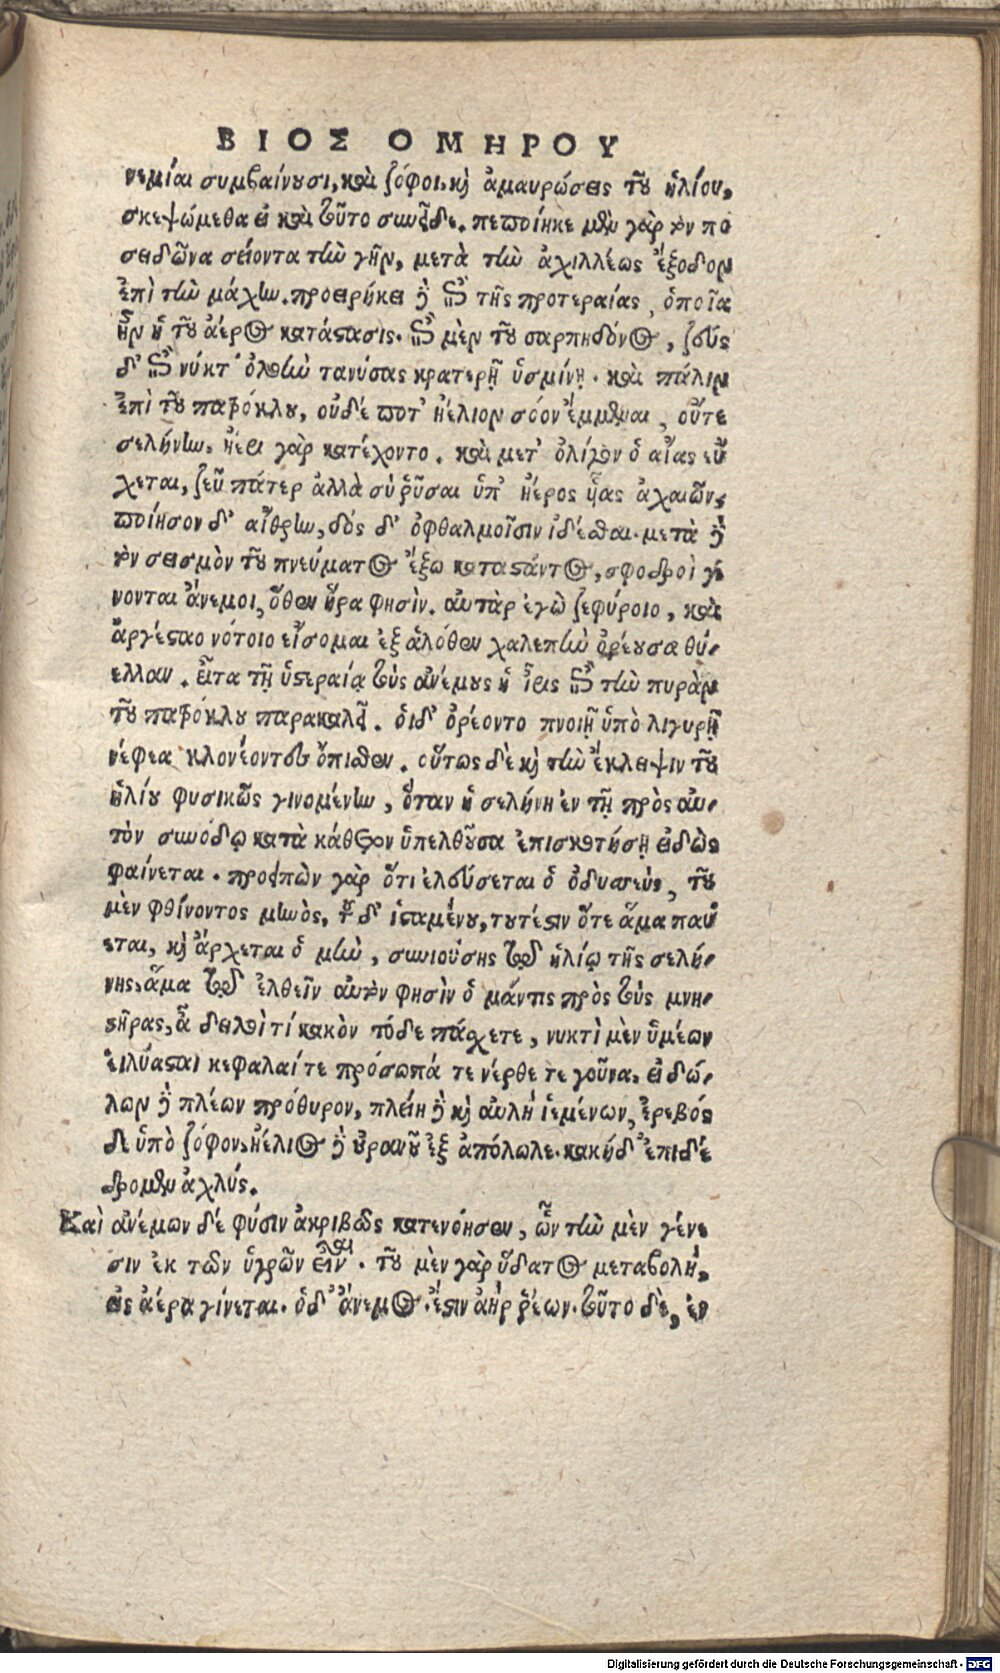 ΒΙΟΣ ΟΜΗΡΟΥ
νεμίαι συμβαίνουσι, καὶ ζόφοι, καὶ ἀμαυρώσεις τοῦ ἡλίου,
σκεψώμεθα εἰ καὶ τοῦτο συνεῖδε. πεποίηκε μὲν γὰρ τὸν πο
σειδῶνα σείοντα τὴν γῆν, μετὰ τὴν ἀχιλλέως ἔξοδον
ἐπὶ τὴν μάχην. προείρηκε δὲ ἐπὶ τῆς προτεραίας, ὁποῖα
ἦν ἡ τοῦ ἀέρος κατάστασις. ἐπὶ μὲν τοῦ σαρπηδόνος, ζεὺς
δ' ἐπὶ νύκτ' ὀλοὴν τανύσας κρατερῇ ὑσμίνῃ. καὶ πάλιν
ἐπὶ τοῦ πατρόκλου, οὐδέ ποτ' ἠέλιον σόον ἔμμεναι, οὔτε
σελήνην. ἠέει γὰρ κατέχοντο. καὶ μετ' ὀλίγον ὁ αἴας εὔ
χεται, ζεῦ πάτερ ἀλλὰ σὺ ῥῦσαι ὑπ' ἠέρος υἷας ἀχαιῶν,
ποίησον δ' αἴθρην, δός δ' ὀφθαλμοῖσιν ἰδέσθαι. μετὰ δὲ
τὸν σεισμὸν τοῦ πνεύματος ἔξω καταστάντος, σφοδροὶ γί
νονται ἄνεμοι, ὅθεν ἥρα φησίν. αὐτὰρ ἐγὼ ζεφύροιο, καὶ
ἀργέσταο νότοιο εἴσομαι ἐξ ἁλόθεν χαλεπὴν ὀρέουσα θύ-
ελλαν. εἶτα τῇ ὑστεραίᾳ τοὺς ἀνέμους ἡ ἶρις ἐπὶ τὴν πυρὰν
τοῦ πατρόκλου παρακαλεῖ. οἱ δ' ὀρέοντο πνοιῇ ὑπὸ λιγυρῇ
νέφεα κλονέοντες ὄπισθεν. οὕτως δὲ καὶ τὴν ἔκλειψιν τοῦ
ἡλίου φυσικῶς γινομένην, ὅταν ἡ σελήνη ἐν τῇ πρὸς αὐ-
τὸν συνόδῳ κατὰ κάθετον ὑπελθοῦσα ἐπισκοτήσῃ εἰδὼς
φαίνεται. προειπὼν γὰρ ὅτι ἐλεύσεται ὁ ὀδυσσεὺς, τοῦ
μὲν φθίνοντος μηνὸς, τοῦ δ' ἱσταμένου, τουτέστιν ὅτε ἅμα παύ
εται, καὶ ἄρχεται ὁ μὴν, συνιούσης τῷ ἡλίῳ τῆς σελή-
νης, ἅμα τῷ ἐλθεῖν αὐτὸν φησὶν ὁ μάντις πρὸς τοὺς μνη-
στῆρας, ἆ δειλοὶ τί κακὸν τόδε πάσχετε, νυκτὶ μὲν ὑμέων
εἰλύαται κεφαλαί τε πρόσωπά τε νέρθε τε γοῦνα. εἰδώ-
λων δὲ πλέων πρόθυρον, πλείη δὲ καὶ αὐλή ἱεμένων, ἔρεβός
δε ὑπὸ ζόφον. ἠέλιος δὲ οὐρανοῦ ἐξ ἀπόλωλε. κακὴ δ' ἐπιδέ
δρομεν ἀχλύς.
Καὶ ἀνέμων δέ φύσιν ἀκριβῶς κατενόησεν, ὧν τὴν μὲν γένε
σιν ἐκ τῶν ὑγρῶν εἶναι. τοῦ μὲν γὰρ ὕδατος μεταβολή,
εἰς ἀέρα γίνεται. ὁ δ' ἄνεμος ἐστιν ἀὴρ ῥέων. τοῦτο δὲ, ἐν
Digitalisierung gefördert durch die Deutsche Forschungsgemeinschaft - DFG